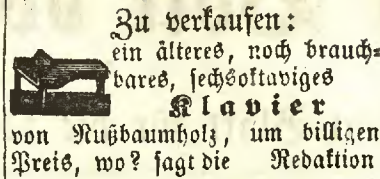 Zu verkaufen:
ein älteres, noch brauch=
bares, sechsoktaviges
Klavier
von Nußbaumholz, um billigen
Preis, wo? sagt die Redaktion